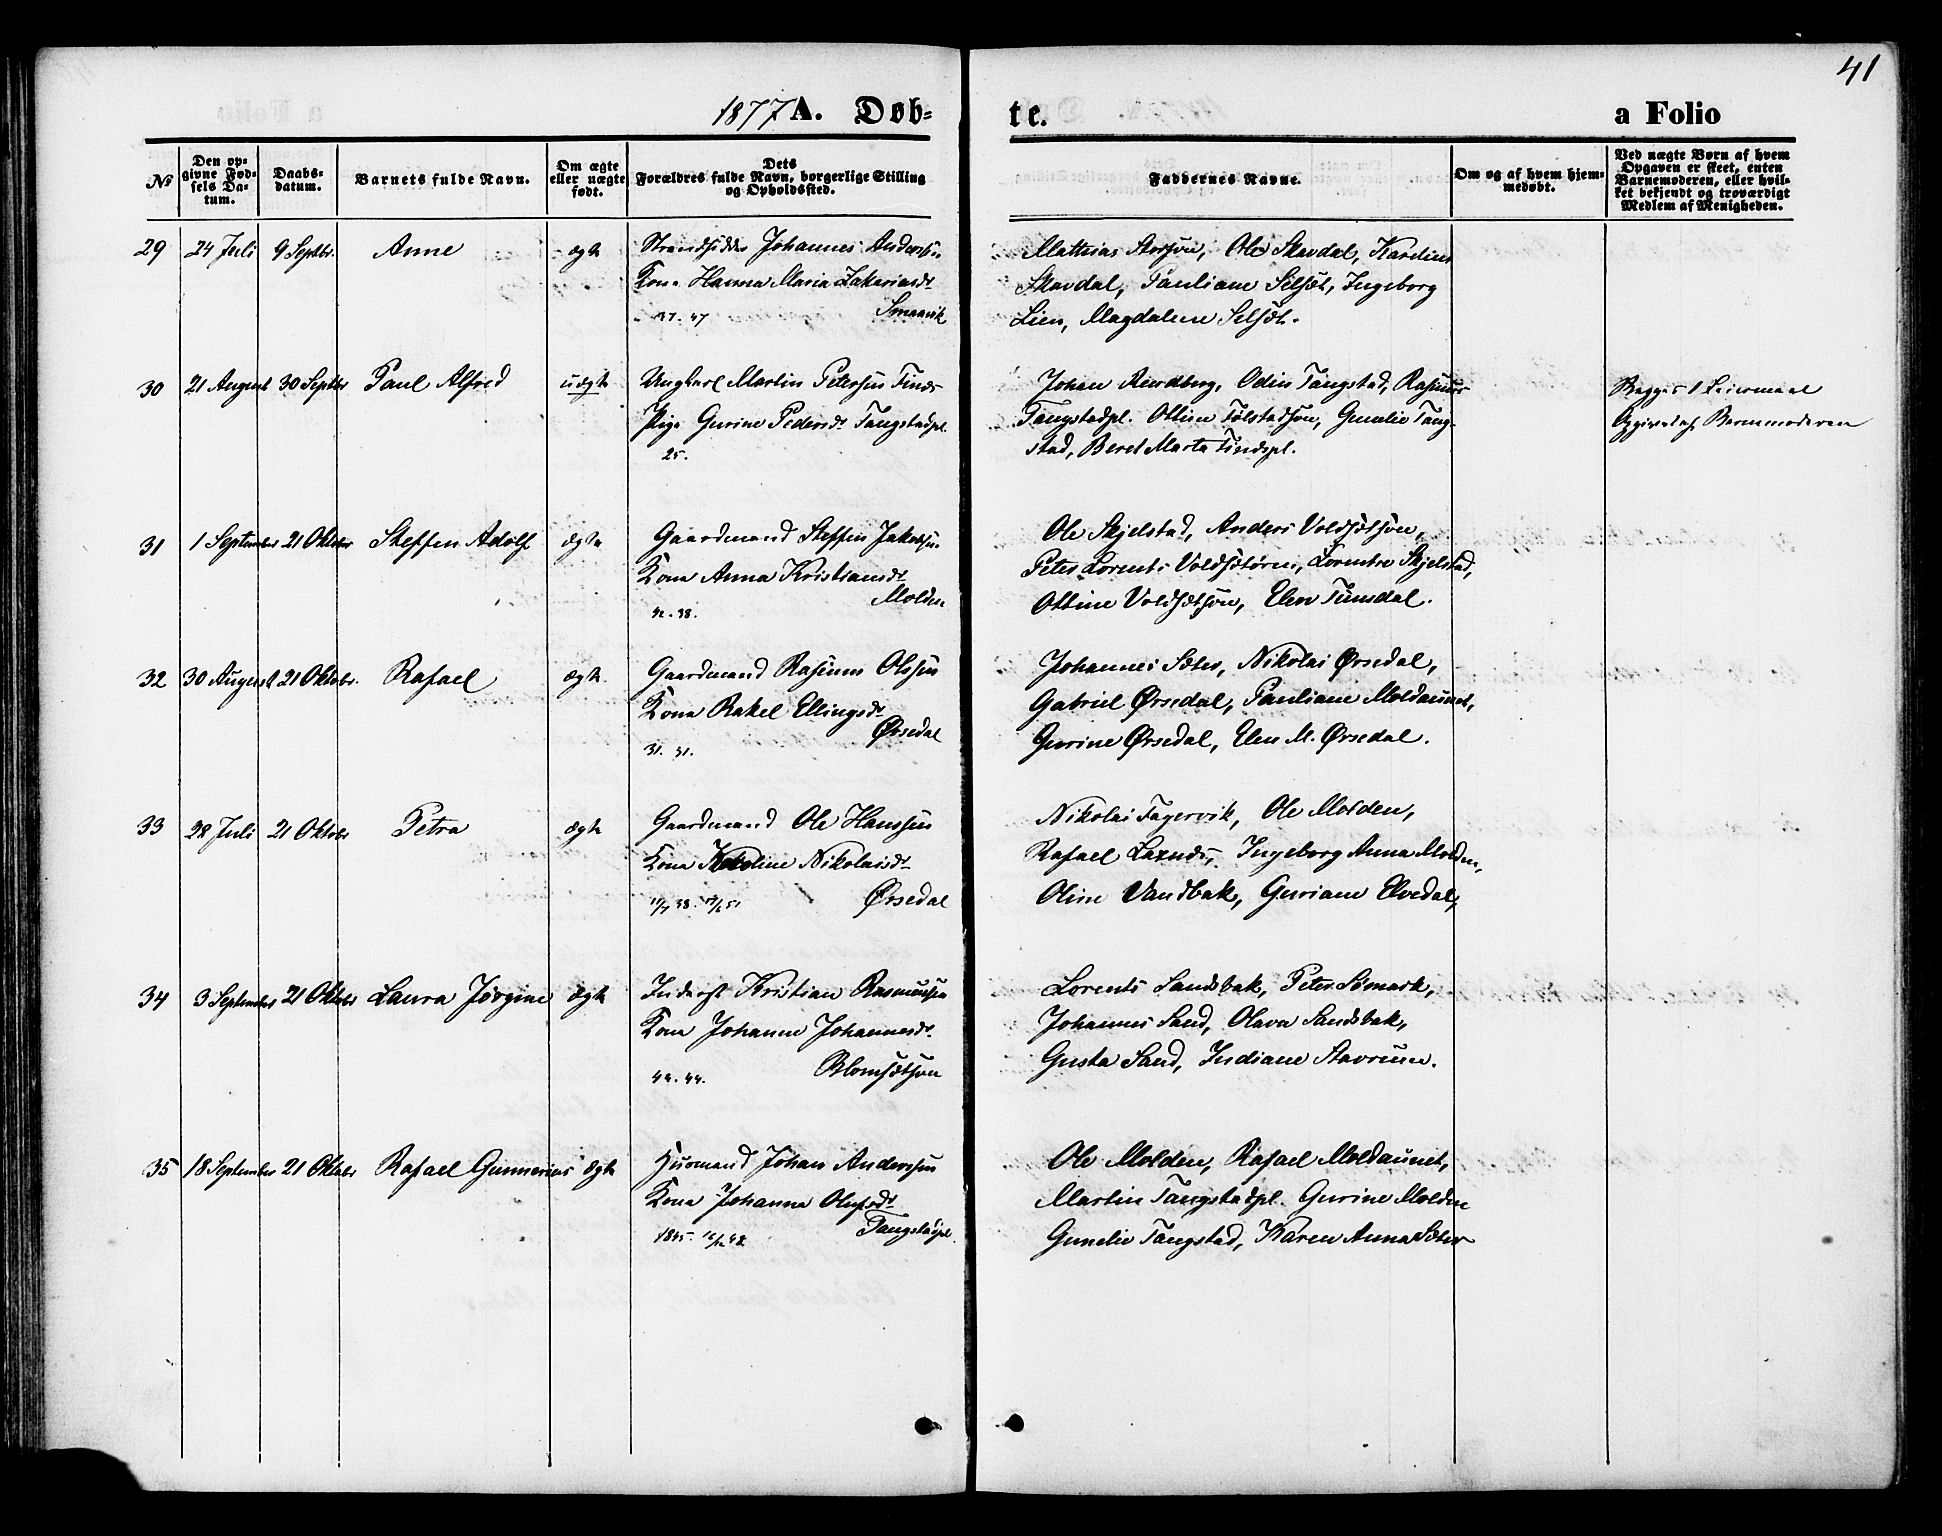 41
1877 A. Døb-
te.
a Folio
№
Den op-
givne Fød-
sels Da-
tum.
Daabs-
datum.
Barnets fulde Navn.
Om ægte
eller uægte
født.
Dets
Forældres fulde Navn, borgerlige Stilling
og Opholdssted.
Faddernes Navne.
Om og af hvem hjem-
medøbt.
Ved uægte Børn af hvem
Opgaven er skeet, enten
Barnemoderen, eller hvil-
ket bekjendt og troværdigt
Medlem af Menigheden.
29 24 Juli 9 Septbr. Anne ægte
Strandsidder Johannes Anderss.
Kone Hanna Maria Zakariasdt
37. 47 Smaavik
Mathias Storsøen, Ole Skavdal, Karolius
Skavdal, Pauliane Selsæt, Ingeborg
Lien, Magdalene Selsæt.
30 21 August 30 Septbr Paul Alfred uægte
Ungkarl Martin Petersen Tinds
Pige Gurine Pedersdt Tangstadpl.
25.
Johan Odin Tangstad, Rasmus
Tangstadpl. Ottine Gunelie Tang-
stad, Beret Marta Tindspl.
Begges 1 Leiermaal
Opgivet af Barnemoderen
31 1 September 21 Oktobr Steffen Adolf ægte
Gaardmand Steffen Jakobsen
Kone Anna Kristiansdt
42. 38. Molden
Ole Skjelstad, Anders Voldsætsøen,
Peter Lorents Lorentse Skjelstad,
Ottine Voldsætsøen, Elen Tunsdal.
32 30 August 21 Oktobr. Rafael ægte.
Gaardmand Rasmus Olssen
Kone Rakel Ellingsdt
31. 31. Ørsedal
Johannes Sæter, Nikolai Ørsedal,
Gabriel Ørsedal, Pauliane Moldaunet,
Gurine Ørsedal, Elen M. Ørsedal.
33 28 Juli 21 Oktobr Petra ægte
Gaardmand Ole Hanssen
Kone Nikolaisdt
Ørsedal
Nikolai Fagervik, Ole Molden,
Rafael Ingeborg Anna Molden,
Oline Vandbak, Guriane Elvedal,
34 3 September 21 Oktobr Laura Jørgine ægte
Inderst Kristian Rasmussen
Kone Johanne Johannesdt.
44. 44. Blomsætsøen
Lorents Sandsbak, Peter Sømark,
Johannes Sand, Olava Sandsbak,
Gusta Sand, Indiane Stavrum.
35 18 September 21 Oktobr Rafael Gunnerius ægte
Husmand Johan Anderssen
Kone Johanna Olufsdt
1845 Tangstadpl.
Ole Molden, Rafael Moldaunet,
Martin Tangstadpl. Gurine Molden
Gunelie Tangstad, Karen Anna Sæter